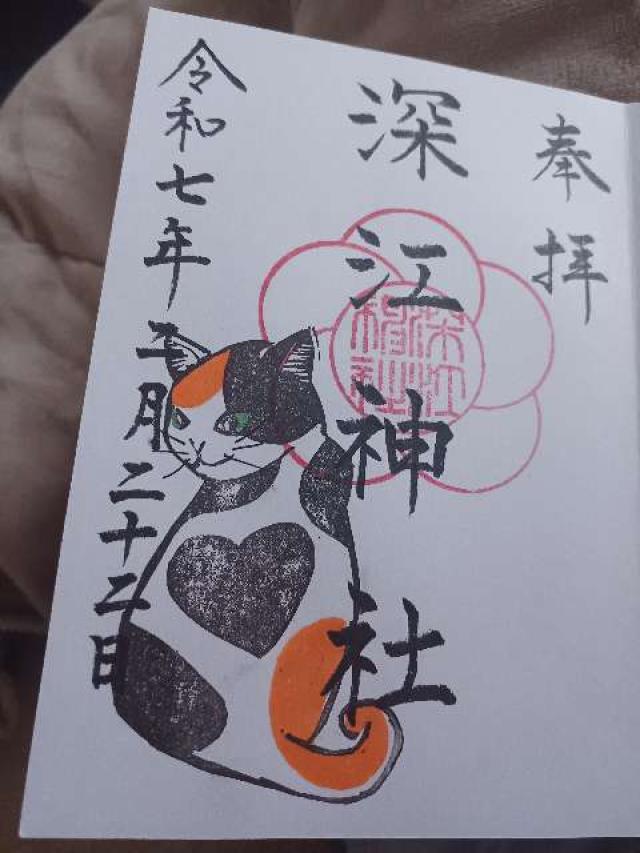 奉拝
深江神社
深江神社
令和七年二月二十二日